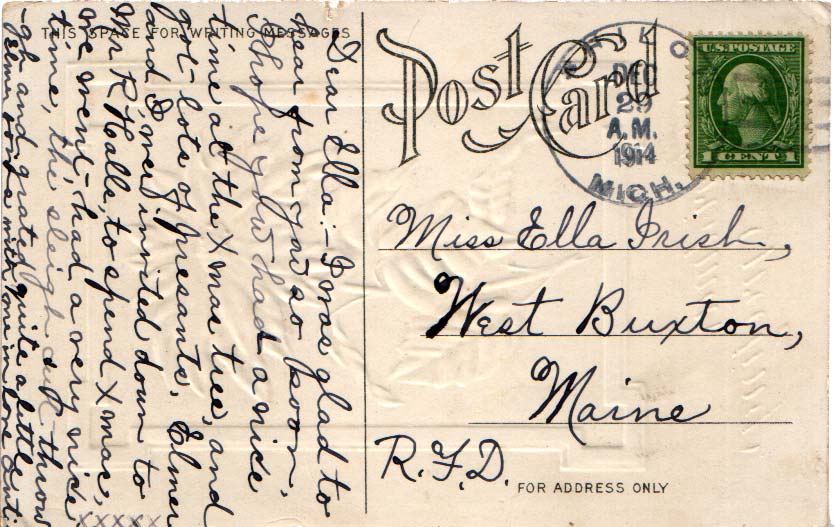 THIS SPACE FOR WRITING MESSAGES
Dear Ella:- I was glad to
hear from you so soon.
I hope you had a nice
time at the Xmas tree, and
got lots of presants, Elmer
and I, were invited down to
Mr R Halls, to spend Xmas,
we went had a very nice
time, the sleigh cut throw
-gh and grated quite a little
Elmer with me in love Aunt
XXXXX
Post Card
DEC
29
A.M.
1914
MICH.
U.S. POSTAGE
1 CENT 1
Miss Ella Irish,
West Buxton,
Maine
R.F.D.
FOR ADDRESS ONLY